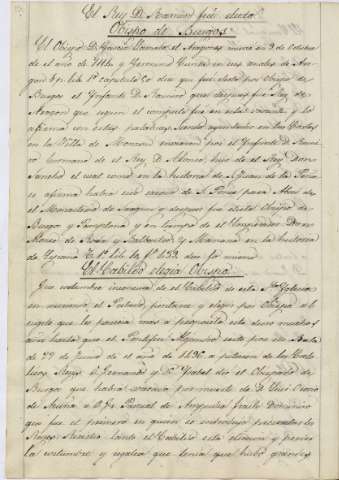 El Rey D. Ramiro fué electo
Obispo de Burgos
El Obispo D. Garcia llamado el Aragones murio en 9 de Octubre
de el año de 1114 y Geronimo Zurita en sus anales de Ara-
gon lib. 1º capitulo 20 dice que fué electo por Obispo de
Burgos el Infante D. Ramiro que despues fue Rey de
Aragon que segun el computo fue en esta vacante, y lo
afirma con estas palabras
en la Villa de Monzon enviaron por el Infante D. Rami-
ro hermano de el Rey D. Alonso, hijo de el Rey Don
Sancho el cual como en la historia de S. Juan de la Peña
se afirma habia sido monje de S. Ponce para Abad de
el Monasterio de Sahagun y despues fue electo Obispo de
Burgos y Pamplona y en tiempo de el Emperador Don
Alonso de Leon y Salbador y Mariana en la historia
de España
El Cabildo elegia Obispo
Fue costumbre inmemorial de el Cabildo de esta Sta Yglesia
en muriendo el Prelado juntarse y elegir por Obispo a el
sugeto que les parecia mas a proposito esta duro muchos
años hasta que el Pontifice Alejandro sesto por su Bula
de 22 de Junio de el año de 1496 a peticion de los Cato-
licos Reyes D. Fernando y Dª Ysabel dio el Obispado de
Burgos que habia vacado por muerte de D. Luis Osorio
de Acuña a D. Fr. Pascual de Ampudia fraile Dominico
que fue el primero en quien se introdujo presentar los
Reyes Nuestro Santo el Cabildo esta eleccion y perder
la costumbre y regalia que tenia que hubo grandes